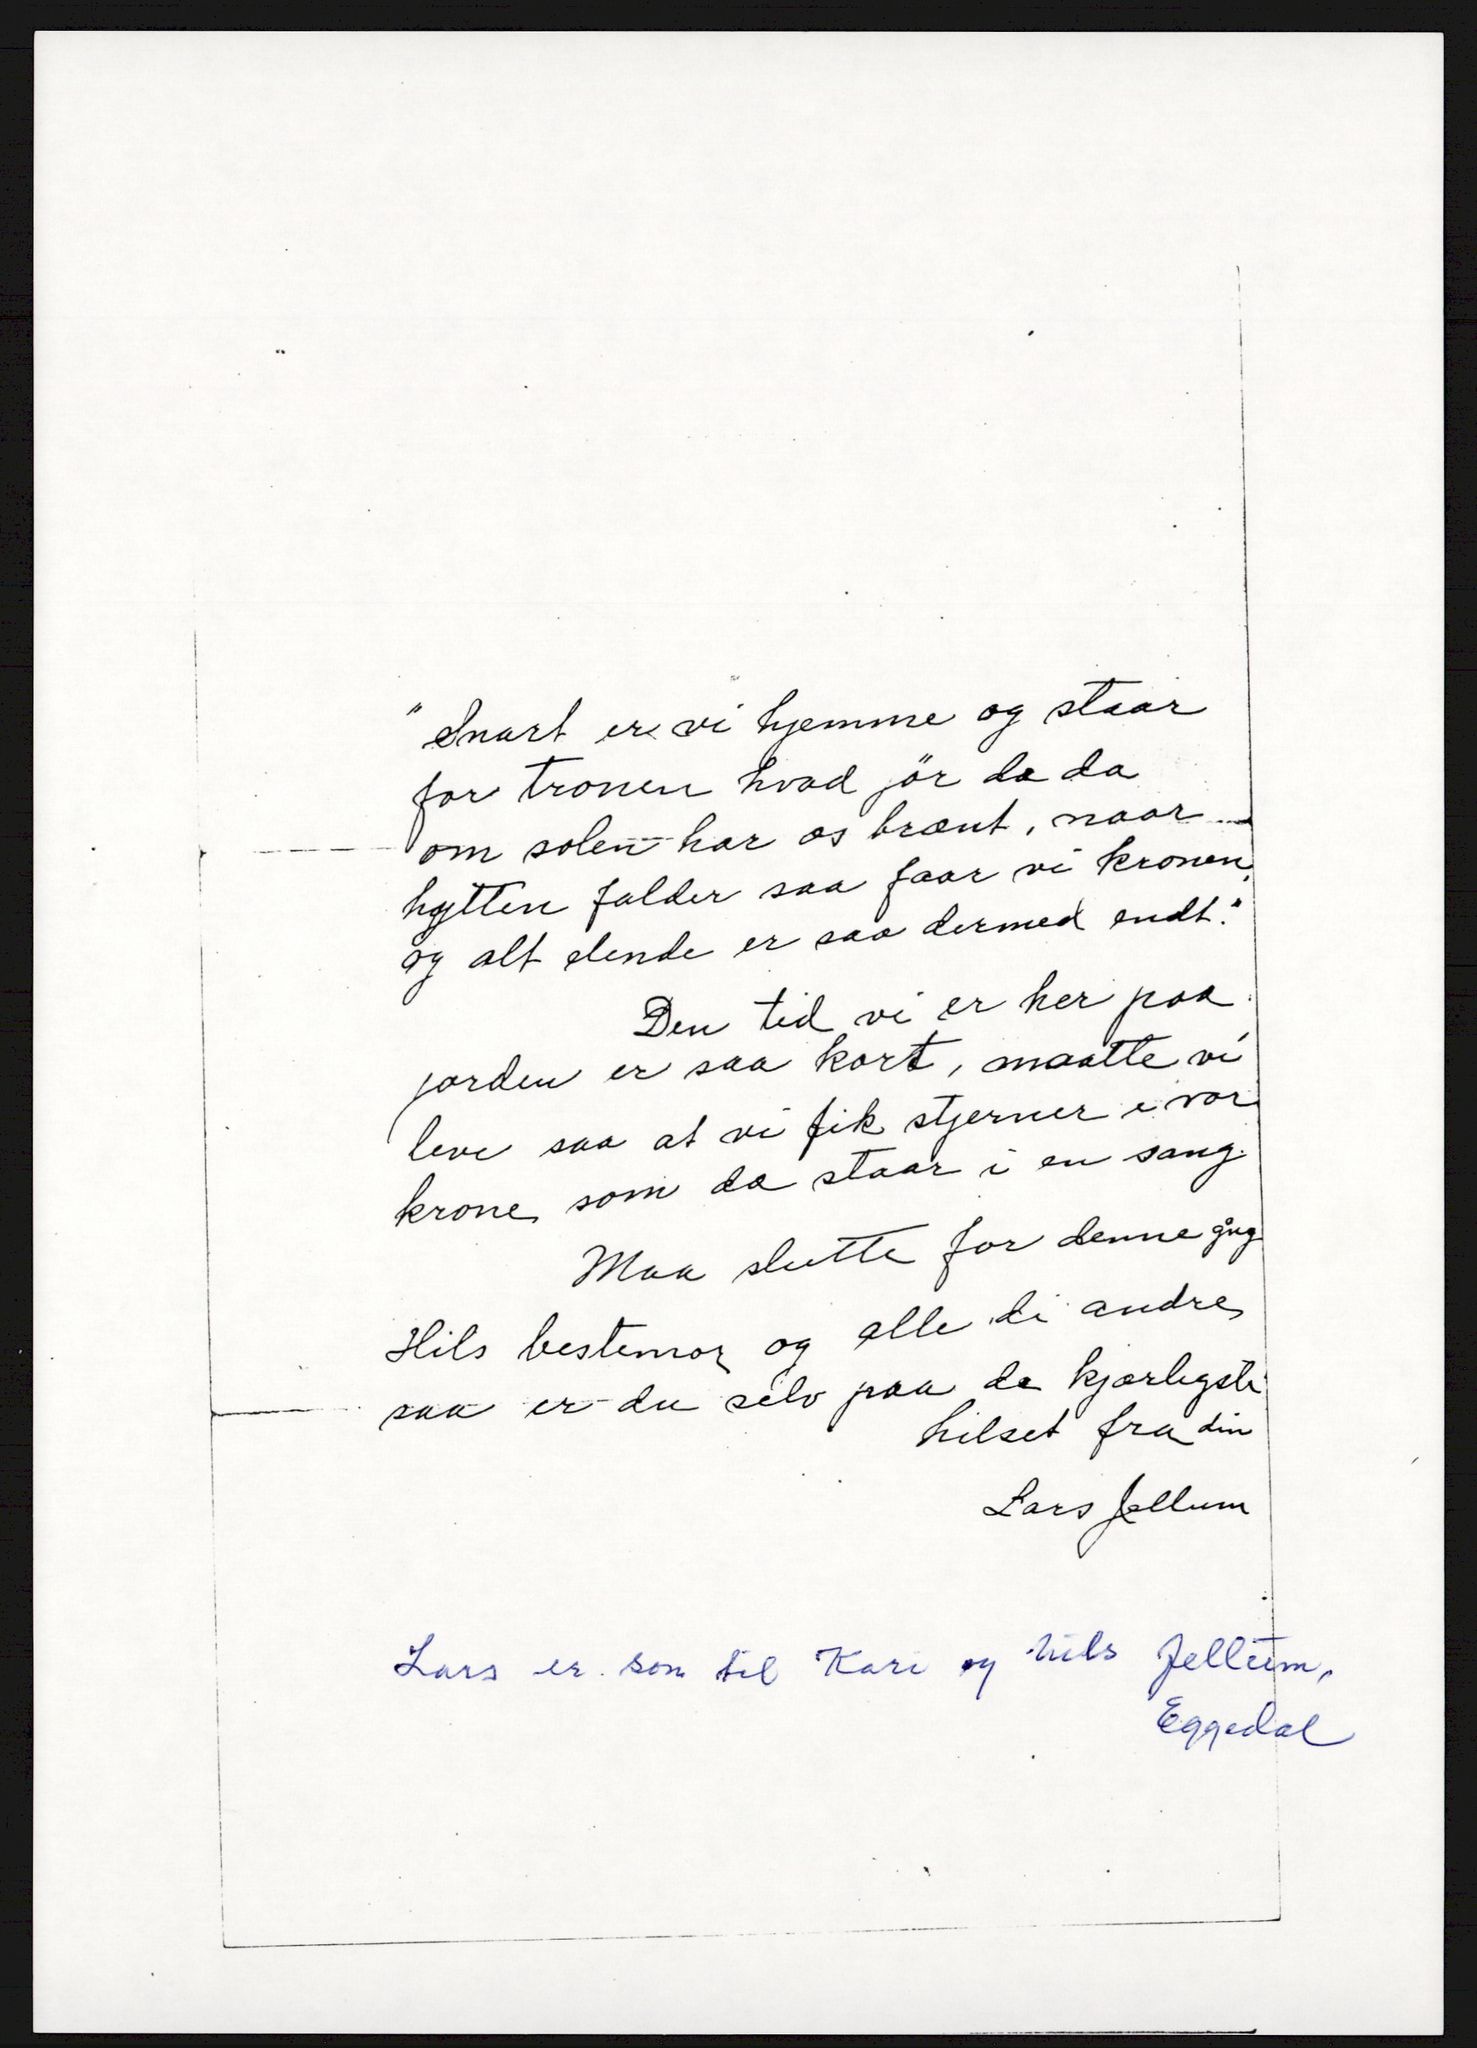 "Snart er vi hjemme og staar
for tronen hvad jör da da
om solen har os brænt, naar
hytten falder saa faar vi kronen,
og alt elende er saa dermed endt."
Den tid vi er her paa
jorden er saa kort, maatte vi
leve saa at vi fik stjerner i vor
krone som da staar i en sang.
Maa slutte for denne gang
Hils bestemor og alle di andre
saa er du selv paa de kjærligste
hilset fra din
Lars Jellum
Lars er son til Kari og Nils Jellum,
Eggedal